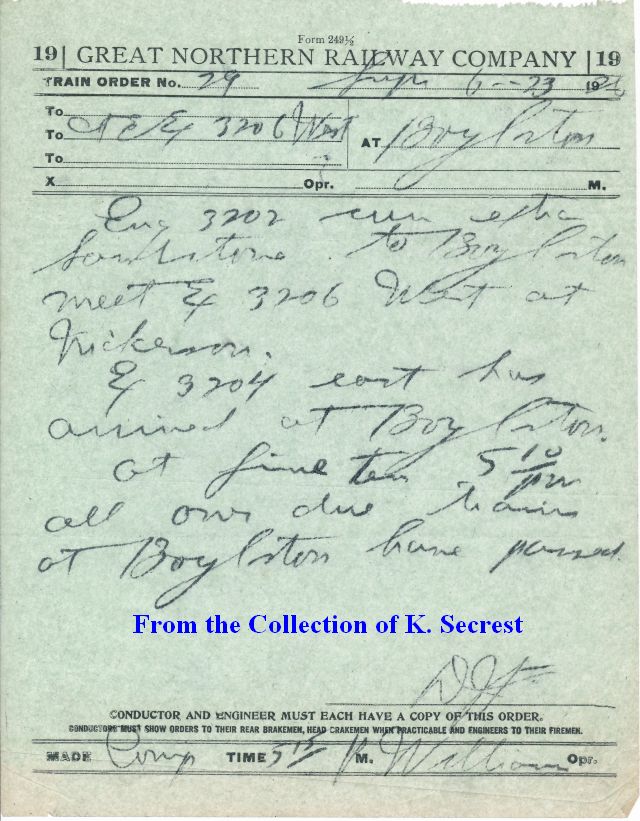 Form 249½
19| GREAT NORTHERN RAILWAY COMPANY |19
TRAIN ORDER No. 29 6-23 19
To
To C & E Ex 3206 West AT Boylston
To
X Opr. M.
Eng 3202 run extra
Sandstone to Boylston
meet Ex 3206 West at
Nickerson.
Ex 3204 east has
arrived at Boylston.
at five ten 5 10/pm
all over due trains
at Boylston have passed.
From the Collection of K. Secrest
CONDUCTOR AND ENGINEER MUST EACH HAVE A COPY OF THIS ORDER.
CONDUCTORS MUST SHOW ORDERS TO THEIR REAR BRAKEMEN, HEAD BRAKEMEN WHEN PRACTICABLE AND ENGINEERS TO THEIR FIREMEN.
MADE Comp TIME 5 15 P M. William Opr.